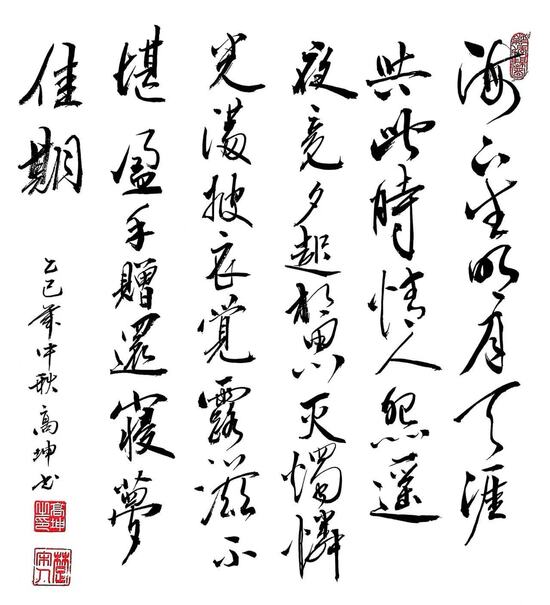 海上生明月天涯
共此時情人怨遥
夜竟夕起相思灭燭憐
光滿披衣覺露滋不
堪盈手贈還寢夢
佳期
乙巳年中秋高坤书
高坤之印